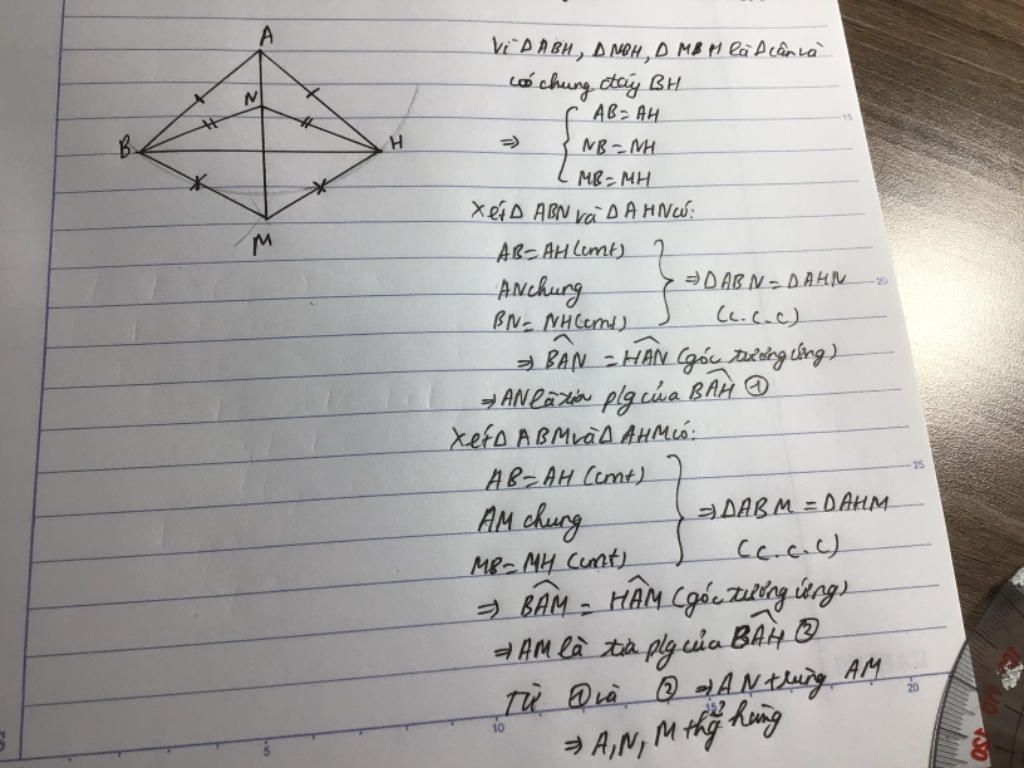 A
N
B
H
M
Vì ΔABH, ΔNBH, ΔMBH là Δ cân và
có chung đáy BH
⇒ { AB = AH
NB = NH
MB = MH
Xét Δ ABN và Δ AHN có:
AB = AH (cmt)
AN chung } ⇒ ΔABN = ΔAHN
BN = NH (cmt) (c.c.c)
⇒ BAN̂ = HAN̂ (góc tương ứng)
⇒ AN là tia p/g của BAĤ ①
Xét Δ ABM và Δ AHM có:
AB = AH (cmt)
AM chung } ⇒ ΔABM = ΔAHM
MB = MH (cmt) (c.c.c)
⇒ BAM̂ = HAM̂ (góc tương ứng)
⇒ AM là tia p/g của BAĤ ②
Từ ① và ② ⇒ AN trùng AM
⇒ A, N, M thẳng hàng
15
20
25
5
10
15
20